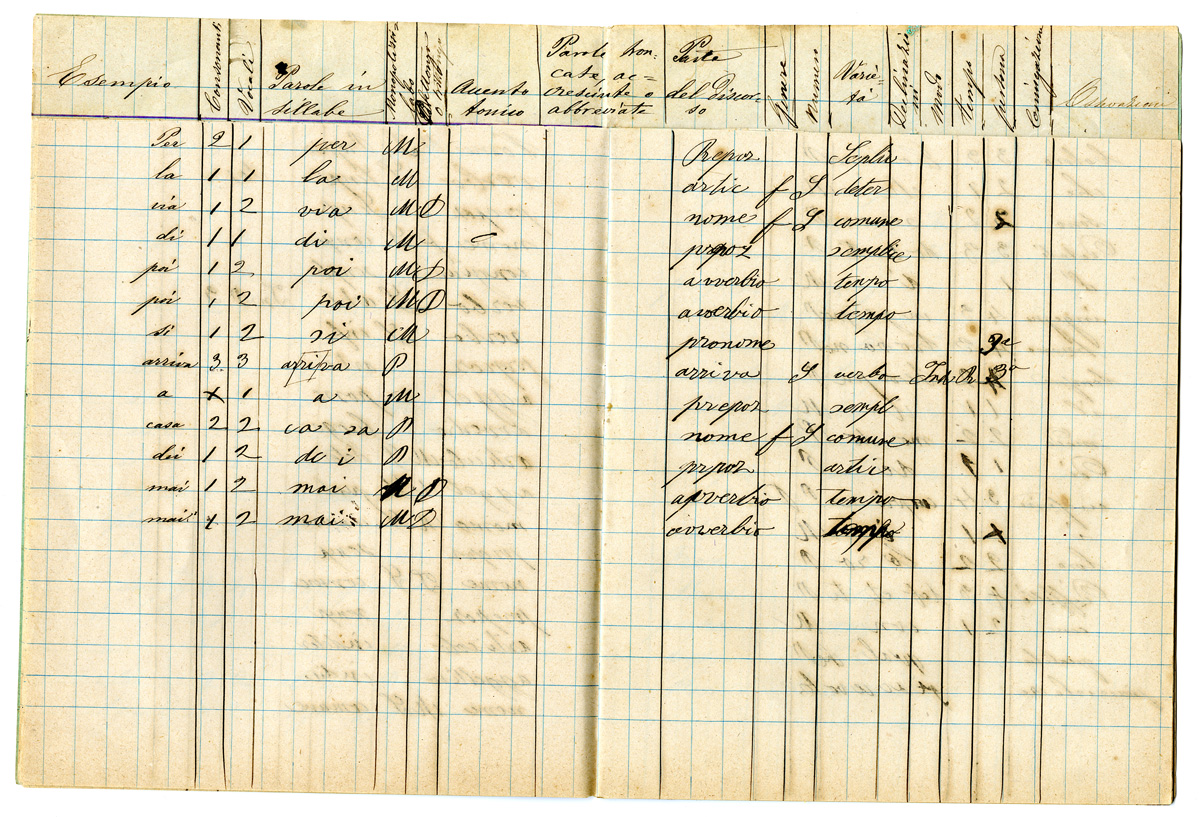 Esempio Consonanti Vocali Parole in sillabe Accento tonico Parole tron-cate, ac-cresciute o abbreviate Parte del Discor-so genere numero Varie-tà modo tempo persona Coniugazione Osservazioni
Per 2 1 per M Prepoz Seplic
la 1 1 la M artic f S deter
via 1 2 via M D nome f S comune
di 1 1 di M prpoz semplice
poi 1 2 poi M D avverbio tempo
poi 1 2 poi M D avverbio tempo
si 1 2 si M pronome 3a
arriva 3 3 ar/ri/va P arriva S verbo Ind P 3a
a x 1 a M prepoz sempl
casa 2 2 ca sa P nome f S comune
dei 1 2 de i P prpoz artic
mai 1 2 mai M D avverbio tempo
mai 1 2 mai M D avverbio tempo